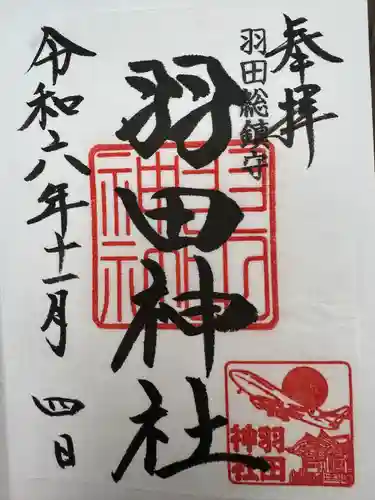 奉拝
羽田総鎮守
羽田神社
令和六年十一月四日
羽田
神社
羽田
神社